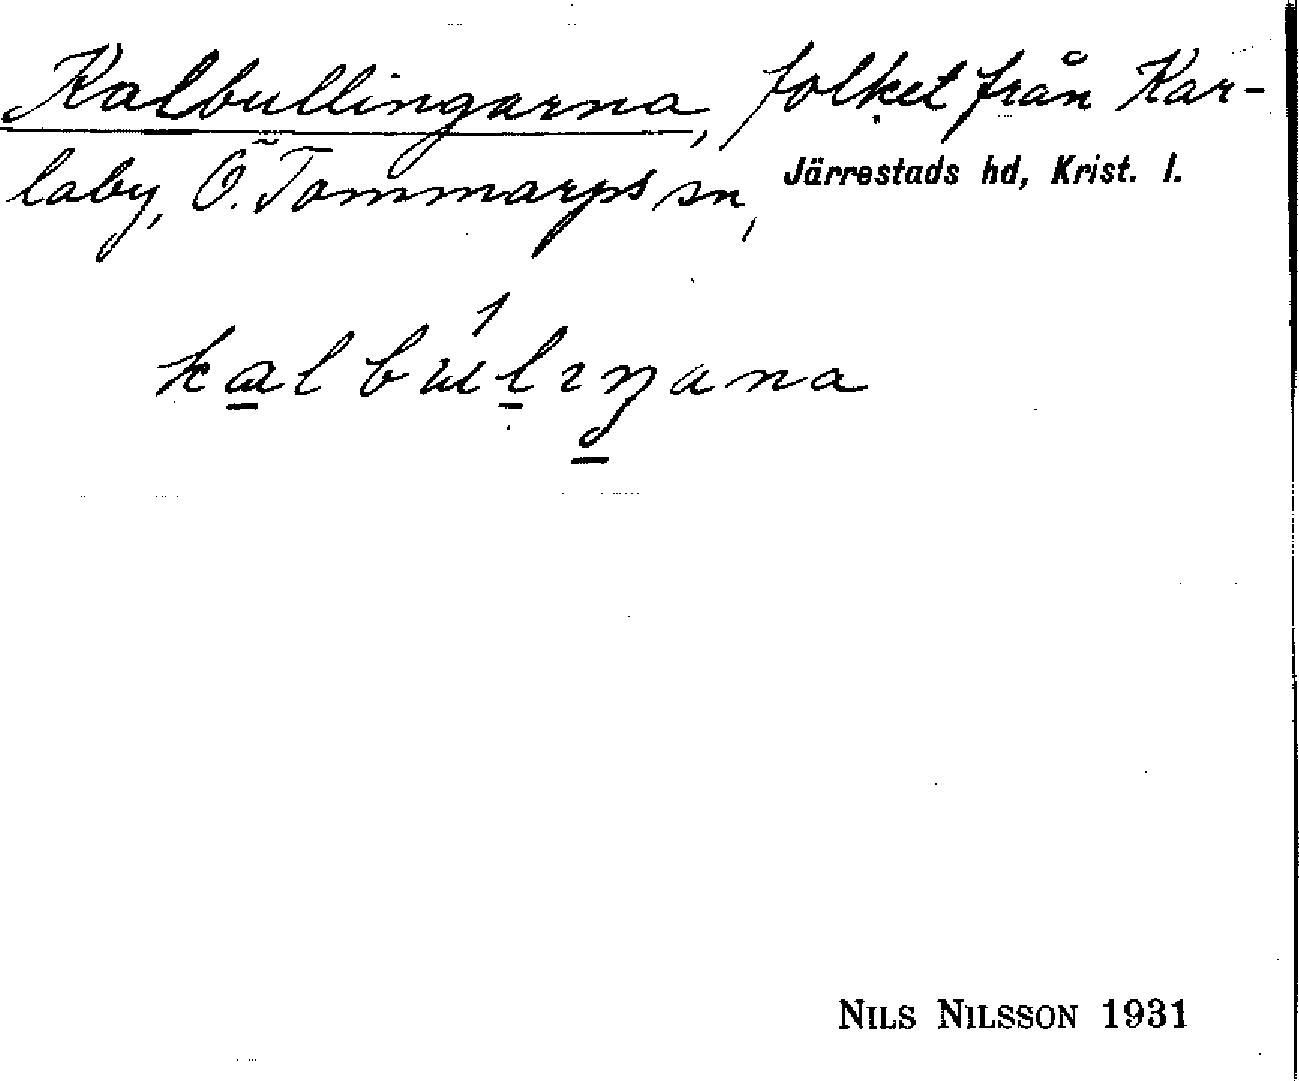 Kalbullingarna, folket från Kar-
laby, Ö. Tommarps sn, Järrestads hd, Krist. l.
NILS NILSSON 1931